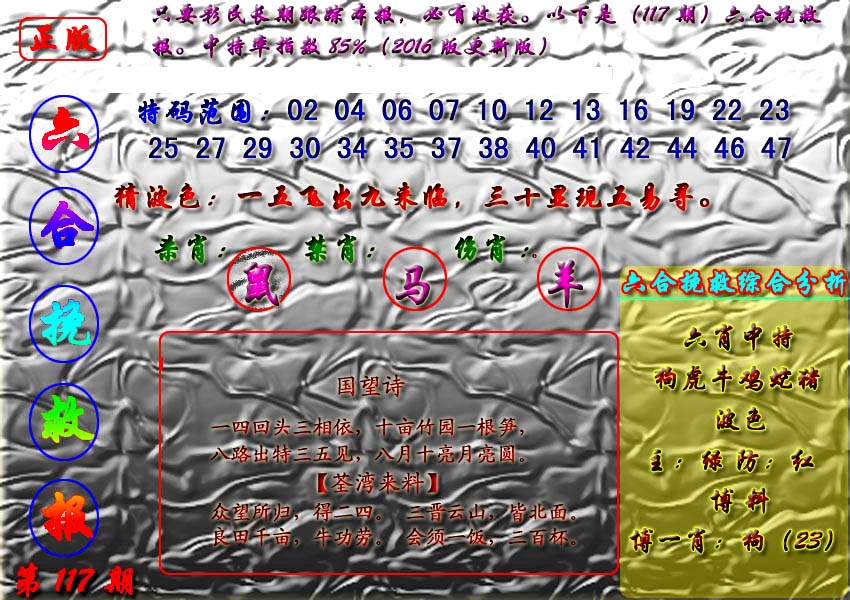 正版
只要彩民长期跟踪本报，必有收获。以下是（117期）六合挽救
报。中特率指数85%（2016版更新版）
六合挽救报
第117期
特码范围：02 04 06 07 10 12 13 16 19 22 23
25 27 29 30 34 35 37 38 40 41 42 44 46 47
猜波色：一五飞出九来临，三十星现五易寻。
杀肖：鼠 禁肖：马 伤肖：羊
国望诗
一四回头三相依，十亩竹园一根笋，
八路出特三五见，八月十亮月亮圆。
【荃湾来料】
众望所归，得二四。 三晋云山，皆北面。
良田千亩，牛功劳。 会须一饭，三百杯。
六合挽救综合分析
六肖中特
狗虎牛鸡蛇猪
波色
主：绿防：红
博料
博一肖：狗（23）